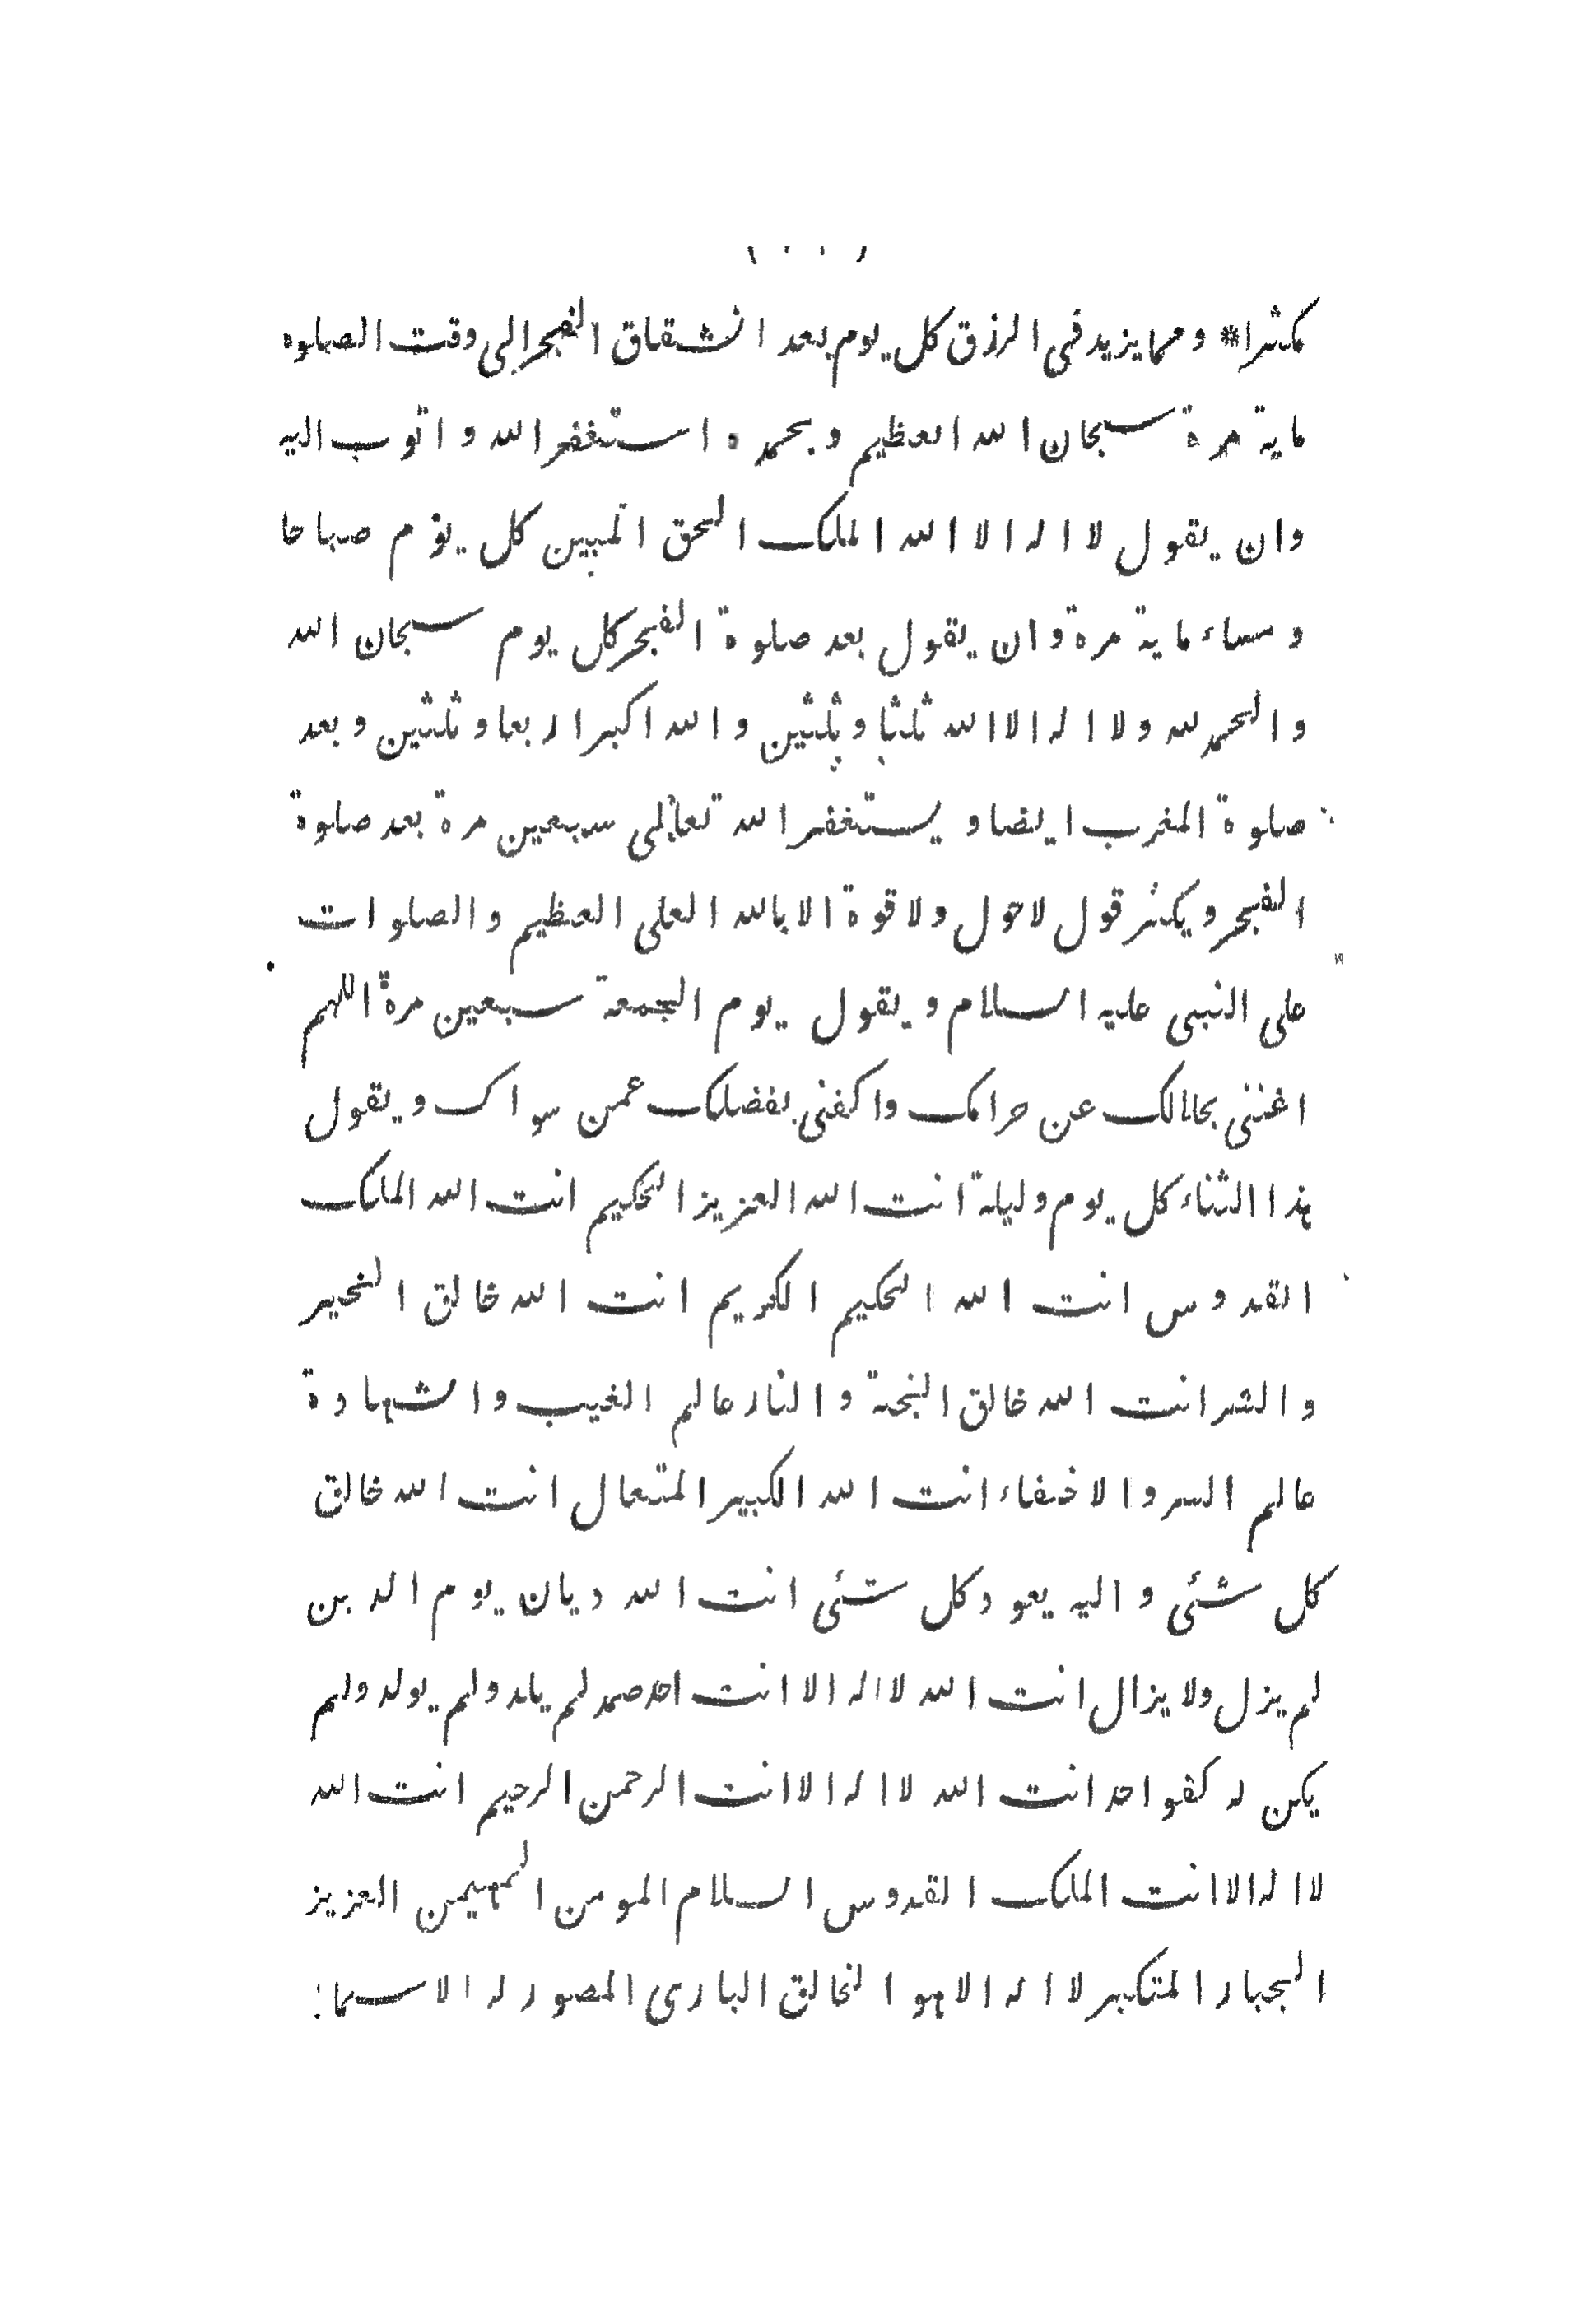 كثيرا * ومما يزيد فى الرزق كل يوم بعد انشقاق الفجر الى وقت الصلوه
ماية مرة سبحان الله العظيم وبحمده استغفر الله واتوب اليه
وان يقول لا اله الا الله الملك الحق المبين كل يوم صباحا
ومساء ماية مرة وان يقول بعد صلوة الفجر كل يوم سبحان الله
والحمد لله ولا اله الا الله ثلثا وثلثين والله اكبر اربعا وثلثين وبعد
صلوة المغرب ايضا ويستغفر الله تعالى سبعين مرة بعد صلوة
الفجر ويكثر قول لا حول ولا قوة الا بالله العلى العظيم والصلوات
على النبى عليه السلام ويقول يوم الجمعة سبعين مرة اللهم
اغننى بحلالك عن حرامك واكفنى بفضلك عمن سواك ويقول
هذا الثناء كل يوم وليلة انت الله العزيز الحكيم انت الله الملك
القدوس انت الله الحكيم الكريم انت الله خالق الخير
والشر انت الله خالق الجنة والنار عالم الغيب والشهادة
عالم السر والاخفاء انت الله الكبير المتعال انت الله خالق
كل شئى واليه يعود كل شئى انت الله ديان يوم الدين
لم يزل ولا يزال انت الله لا اله الا انت احد صمد لم يلد ولم يولد ولم
يكن له كفوا احد انت الله لا اله الا انت الرحمن الرحيم انت الله
لا اله الا انت الملك القدوس السلام المومن المهيمن العزيز
الجبار المتكبر لا اله الا هو الخالق البارى المصور له الاسماء